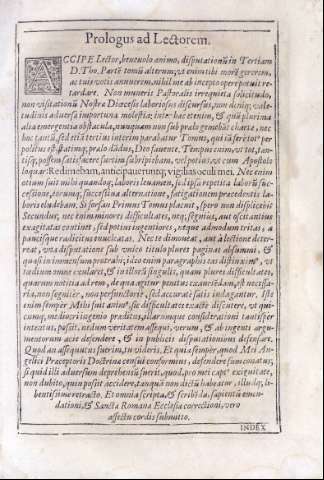 Prologus ad Lectorem.
ACCIPE Lector, beneuolo animo, disputationũ in Tertiam
D. Tho. Partẽ tomũ alterum; vt enim tibi morẽ gererem,
ac tuis votis annuerem, nihil me ab incepto opere potuit re-
tardare. Non muneris Pastoralis irrequieta solicitudo,
non visitationũ Nostræ Diœcesis laboriosus discursus, non deniq; vale-
tudinis aduersa importuna molestia; inter hæc etenim, & quã plurima
alia emergentia obstacula, nunquam non sub prælo gemebãt chartæ, nec
hac tantũ, sed etiã tertius interim parabatur Tomus, qui iã ferè
politus est
prælo Deo fauente. Tempus enim, vt tot, tan-
tisq; possem satisfacere sursim subripiebam, vel potius, vt cum Apostolo
loquar: Redimebam, anticipauerunt q; vigilias oculi mei. Nec enim
otium fuit mihi quandoq; laboris leuamen, sed ipsa repetita laboris suc-
cessione, torumq; successiua alteratione, fatigationem præcedentis la-
boris eludebam. Si forsan Primus Tomus placuit, spero non displicebit
Secundus, nec enim minores difficultates, nec segnius, aut oscitantius
exagitatas continet, sed potius ingentiores, neque admodum tritas, a
paucisque radicitus enucleatas. Nec te dimoueat, aut à lectione deter-
reat, vna disputatione sub vnico titulo plures paginas absumi, &
quasi in immensum protrahi; ideo enim paragraphis tas distinxi, vt
tædium omne exularet, & in illorũ singulis, quam plures difficultates,
quarum notitia ad rem, de qua agitur penitus examinandam, est necessa-
ria, non segniter, non perfunctoriè, sed accuratè satis indagantur. Est
enim semper Mihi fuit animus, se difficultates exactè discutere, vt qui-
cumq; mediocri ingenio præditus, illarumque consideratione tantisper
intentus, possit, nedum veritatem assequi, verum, & ab ingenti argu-
mentorum acie defendere, & in publicis disputationibus defensare.
Quod an assequutus fuerim, tu videris. Et quia semper, quod Mei An-
gelici Præceptoris Doctrinæ censui conforme, defendere sum conatus;
si quid illi aduersum deprehensũ fuerit, quod, pro mei capt exiguitate,
non dubito, quin possit accidere, tanquã non dictũ habeatur, illudq; li-
bentissimè retracto. Et omnia scripta, & scribẽda, sapientũ emen-
dationi, & Sanctæ Romanæ Ecclesiæ correctioni, vero
affectu cordis submitto.
INDEX